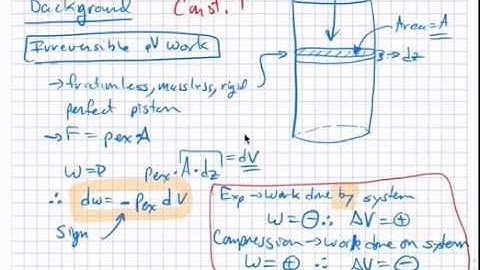 Background
Const. T
Irreversible pV work
Area = A
→ frictionless, massless, rigid
perfect piston
→ dz
→ F = pex·A
W = P
pex · A · dz = dV
∴ dw = -Pex dV
Sign
Exp → work done by system
W = ⊖ ∴ ΔV = ⊕
Compression → work done on system
W = ⊕ ∴ ΔV = ⊖